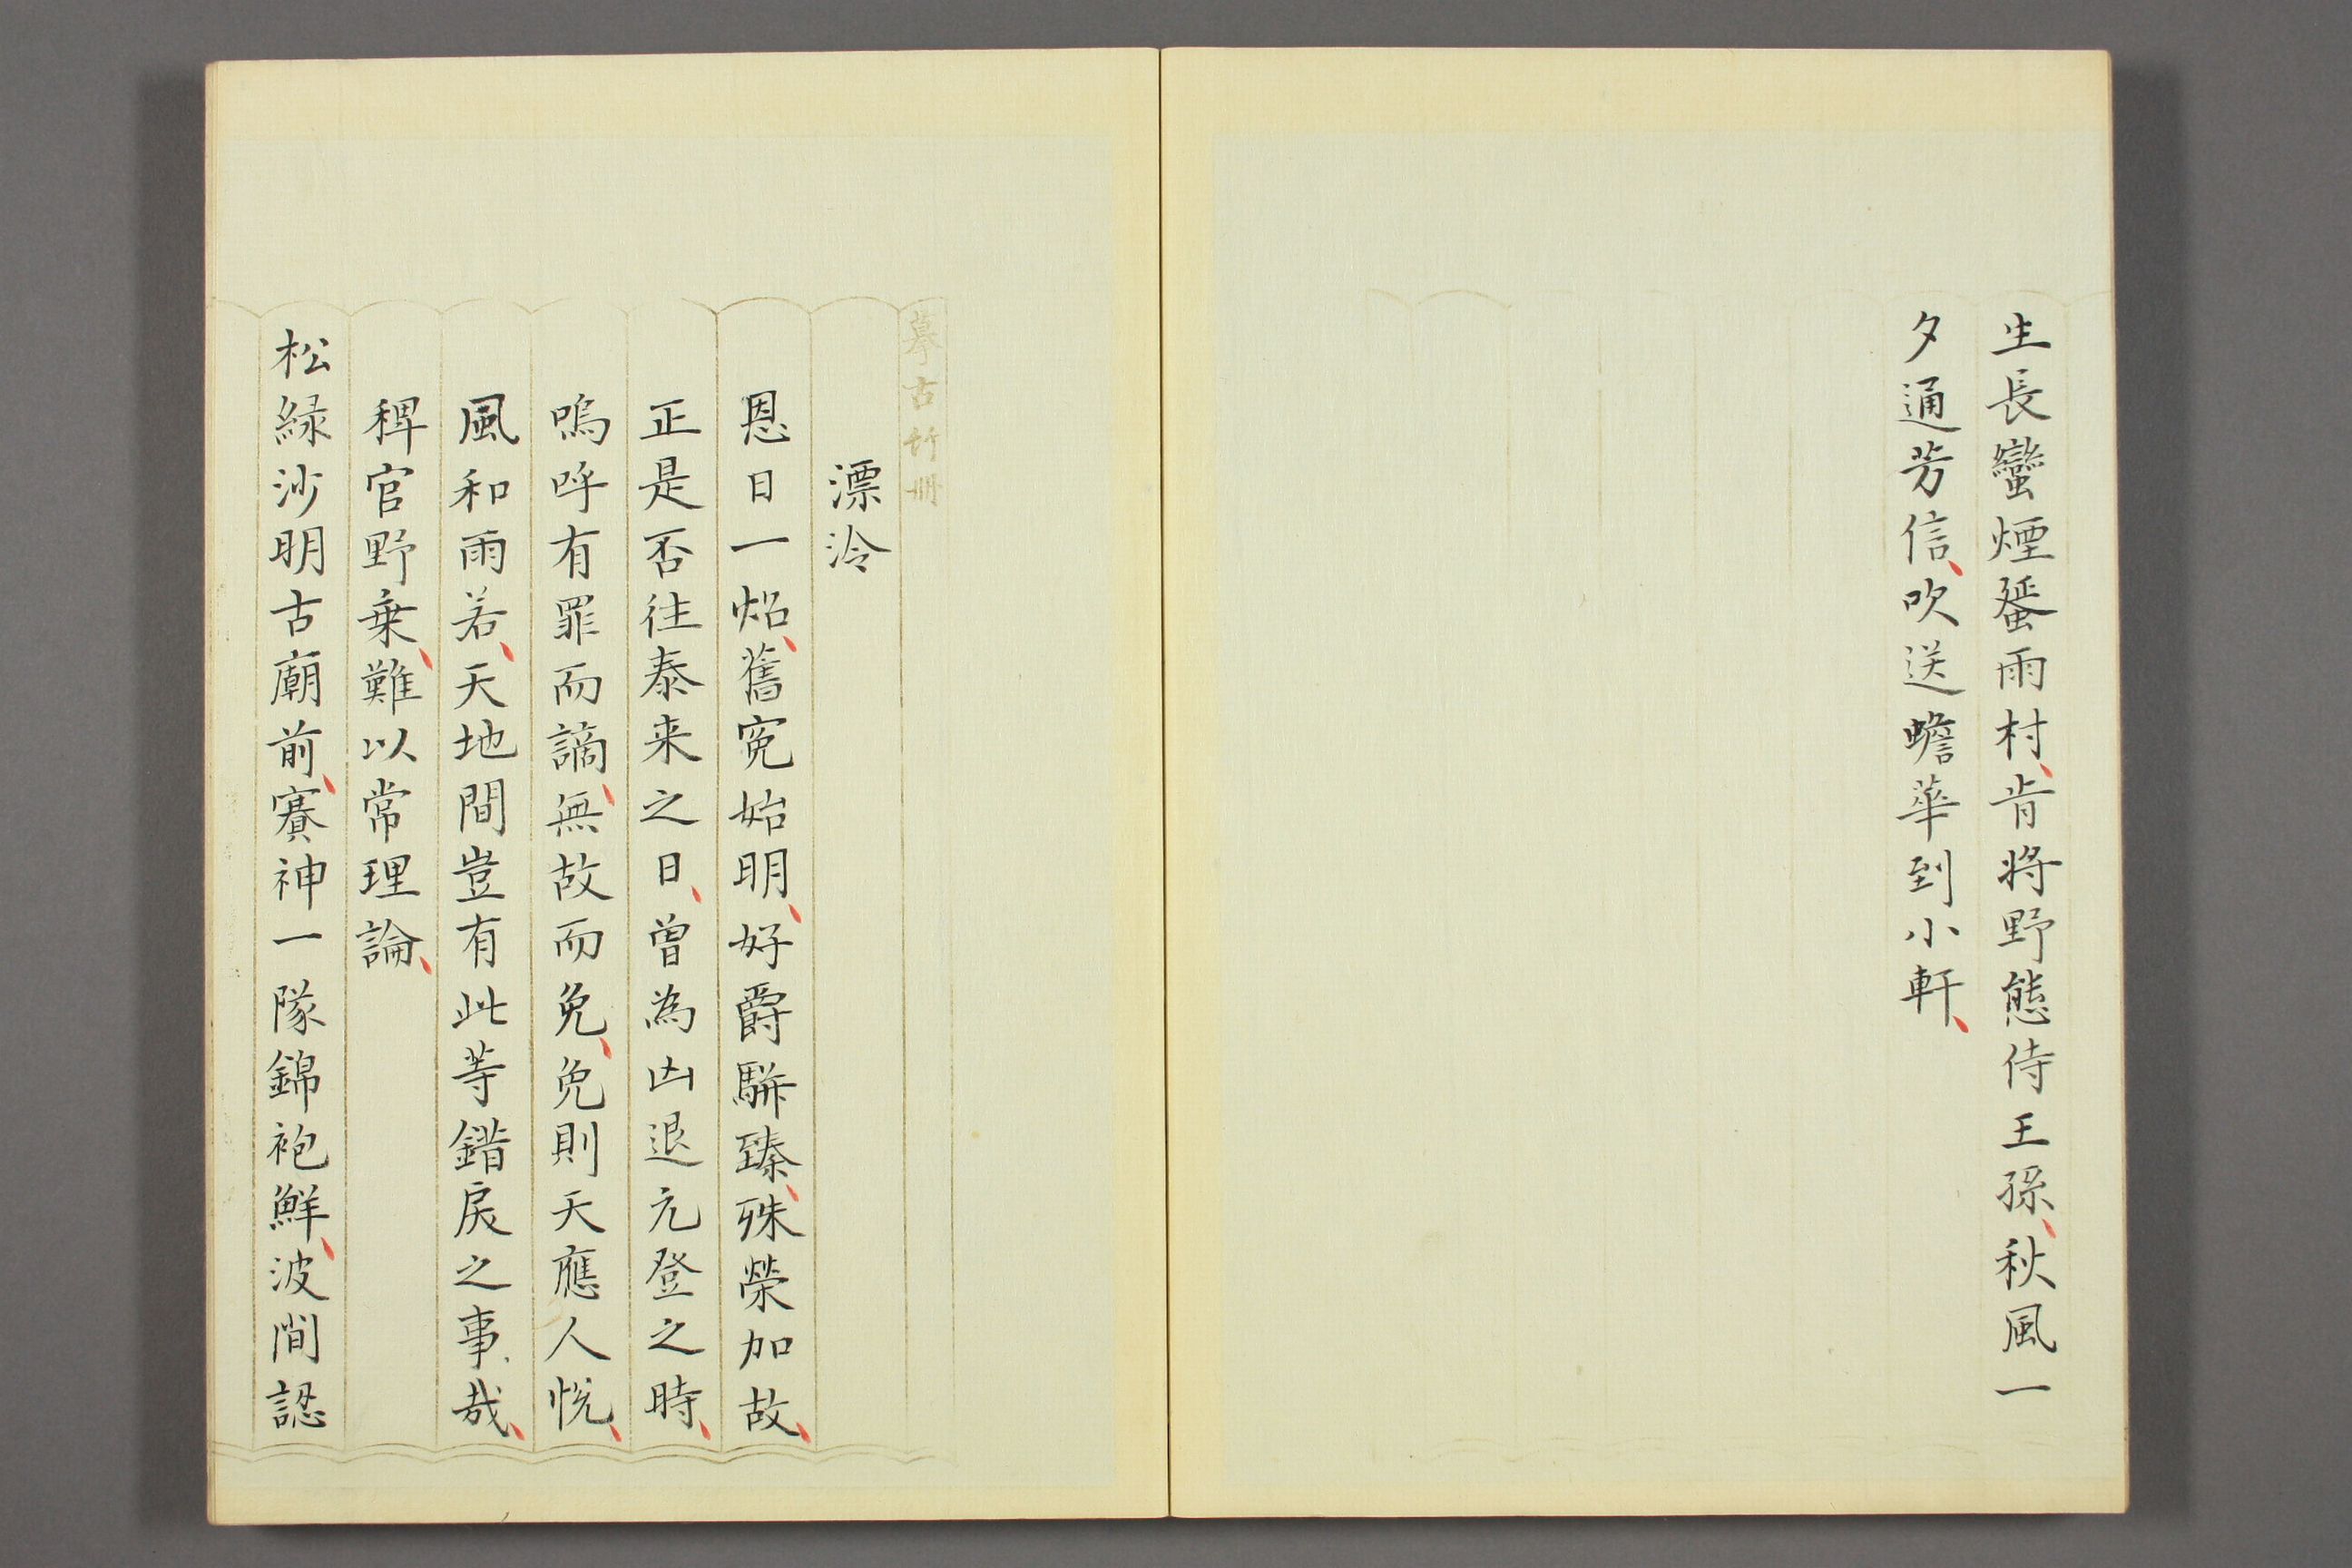 生長蠻煙蜑雨村肯將野態侍王孫秋風一
夕通芳信吹送蟾華到小軒
摹古竹冊
漂泠
恩日一炤舊寃始明好爵駢臻殊榮加故
正是否往泰来之日曽為凶退元登之時
嗚呼有罪而謫無故而免免則天應人悅
風和雨若天地間豈有此等錯戾之事哉
稗官野乗難以常理論
松緑沙明古廟前賽神一隊錦袍鮮波間認